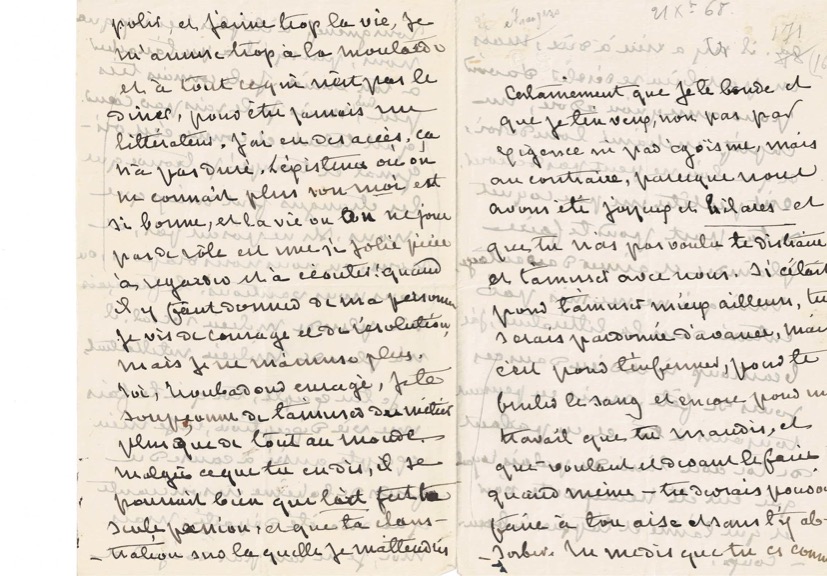 polir, et j'aime trop la vie, je
m'amuse trop à la moutarde
et à tout ce qui n'est pas le
dîner, pour être jamais un
littérateur. J'ai eu des accès, ça
n'a pas duré. L'existence où on
ne connaît plus son moi, est
si bonne, et la vie où on ne joue
pas de rôle est une si jolie pièce
à regarder et à écouter! quand
il y faut donner de ma personne
je vis de courage et de résolution,
mais je ne m'amuse plus.
Toi, troubadour enragé, je te
soupçonne de t'amuser du métier
plus que de tout au monde.
malgré ce que tu en dis, il se
pourrait bien que l'art fut ta
seule passion, et que ta claus-
-tration sur laquelle je m'attendris
21 Xe 68.
171
Certainement que je te boude et
que je t'en veux, non pas par
exigence ni par égoïsme, mais
au contraire, parceque nous
avons été joyeux et hilares et
que tu n'as pas voulu te distraire
et t'amuser avec nous. Si c'était
pour t'amuser mieux ailleurs, tu
serais pardonné d'avance, mais
c'est pour t'enfermer, pour te
bruler le sang et encore pour un
travail que tu maudis, et
que – voulant et devant le faire
quand même – tu devrais pouvoir
faire à ton aise et sans t'y ab-
-sorber. Tu me dis que tu es comme